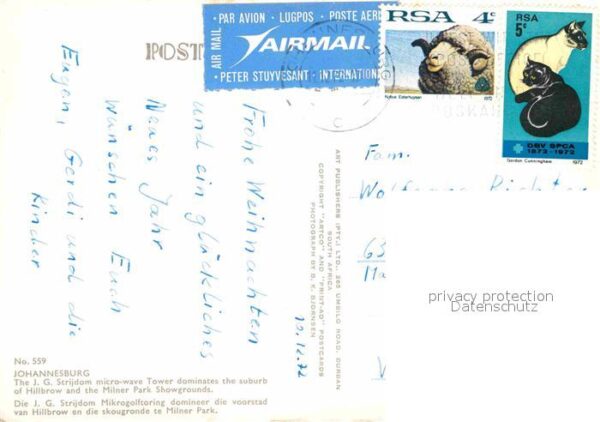 PAR AVION · LUGPOS · POSTE AER
AIR MAIL
AIRMAIL
PETER STUYVESANT · INTERNATION
RSA 4c
1972
RSA
5c
DBV SPCA
1872-1972
Gordon Cunningham 1972
POST
Frohe Weihnachten
und ein glückliches
Neues Jahr
Wünschen Euch
Eugen, Gerdi und die
Kinder
10.12.72
ART PUBLISHERS (PTY.) LTD., 365 UMBILO ROAD, DURBAN
SOUTH AFRICA
COPYRIGHT "ARTCO" AND "PRINT-AD" POSTCARDS
PHOTOGRAPH BY G. K. BJORNSEN
Fam.
63
privacy protection
Datenschutz
No. 559
JOHANNESBURG
The J. G. Strijdom micro-wave Tower dominates the suburb
of Hillbrow and the Milner Park Showgrounds.
Die J. G. Strijdom Mikrogolftoring domineer die voorstad
van Hillbrow en die skougronde te Milner Park.